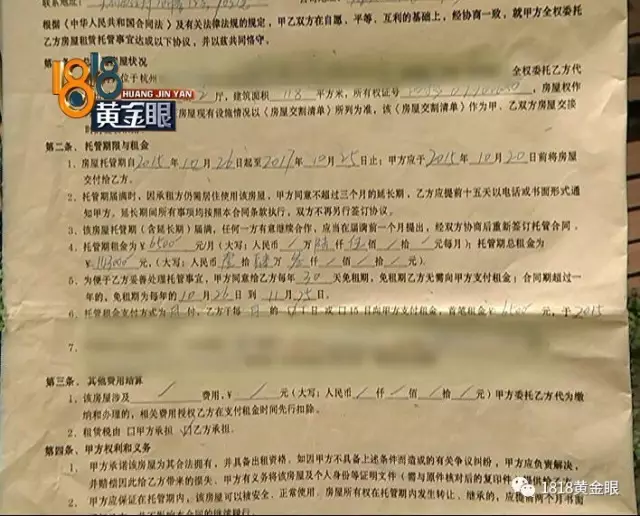 根据《中华人民共和国合同法》及有关法律法规的规定，甲乙双方在自愿、平等、互利的基础上，经协商一致，就甲方全权委托
乙方房屋租赁托管事宜达成以下协议，并以兹共同恪守。
屋状况
位于杭州 全权委托乙方代
厅，建筑面积 118 平方米，所有权证号 ，房屋权作
房屋现有设施情况以《房屋交割清单》所列为准，该《房屋交割清单》作为甲、乙双方房屋交接
1818 HUANG JIN YAN
黄金眼
第二条、托管期限与租金
1. 房屋托管期自2015年10月26日起至2017年10月25日止；甲方应于2015年10月20日前将房屋
交付给乙方。
2. 托管期届满时，因承租方仍需居住使用该房屋，甲方同意不超过三个月的延长期，乙方应提前十五天以电话或书面形式通
知甲方。延长期间所有事项均按照本合同条款执行，双方不再另行签订协议。
3. 该房屋托管期（含延长期）届满，任何一方有意继续合作，应当在届满前一个月提出，经双方协商后重新签订托管合同。
4. 托管期租金为￥6500元/月（大写：人民币/万陆仟伍佰/拾/元每月）；托管期总租金为
￥143000元，（大写：人民币 万 仟/佰/拾/元）。
5. 为便于乙方妥善处理托管事宜，甲方同意给乙方每年30天免租期，免租期乙方无需向甲方支付租金；合同期超过一
年的，免租期为每年的10月26日到11月25日。
6. 托管租金支付方式为月付，乙方于每月的 1日或口15日向甲方支付租金，首笔租金￥6500元，于2015
7.
第三条、其他费用结算
1. 该房屋涉及/费用，￥/元（大写：人民币/仟/佰/拾/元）甲方委托乙方代为缴
纳和办理的，相关费用授权乙方在支付租金时间先行扣除。
2. 租赁税由 口甲方承担 ☑乙方承担。
第四条、甲方权利和义务
1. 甲方承诺该房屋为其合法拥有，并具备出租资格。如因甲方不具备上述条件而造成的有关争议纠纷，甲方应负责解决，
并赔偿因此给乙方带来的损失。甲方有义务将该房屋及个人身份等证明文件（需与原件核对后的复印件
2. 甲方应保证在托管期内，该房屋可以被安全、正常使用。房屋所有权在托管期内发生转让、继承的，应提前两个月书面
1818黄金眼